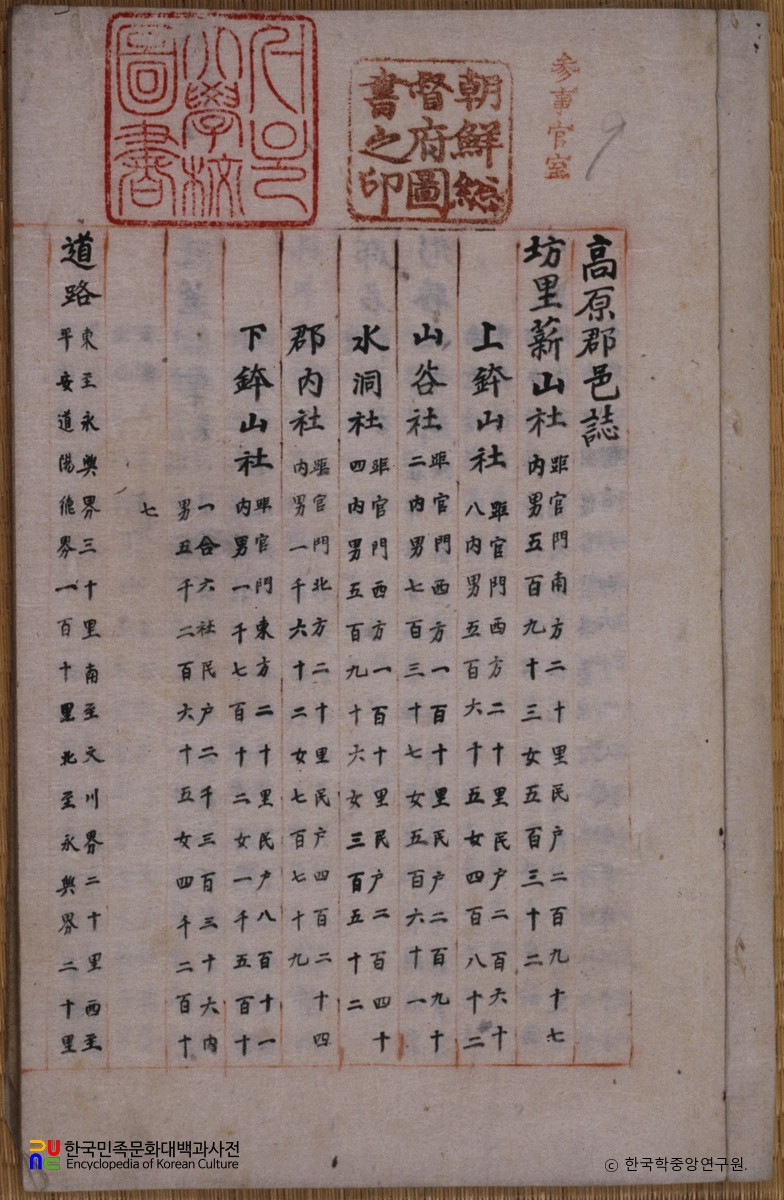 参事官室
9
朝鮮總
督府圖
書之印
서울
大學校
圖書
高原郡邑誌
坊里薪山社
距官門南方二十里民户二百九十七
内男五百九十三女五百三十二
上鉢山社
距官門西方二十里民户二百六十
八内男五百六十五女四百八十二
山谷社
距官門西方一百十里民户二百九十
二内男七百三十七女五百六十一
水洞社
距官門西方一百十里民户二百四十
四内男五百九十六女三百五十二
郡内社
距官門北方二十里民户四百二十四
内男一千六十二女七百七十九
下鉢山社
距官門東方二十里民户八百十一
内男一千七百十二女一千五百十
一合六社民户二千三百三十六内
男五千二百六十五女四千二百十
七
道路
東至永興界三十里南至文川界二十里西至
平安道陽德界一百十里北至永興界二十里
한국민족문화대백과사전
Encyclopedia of Korean Culture
© 한국학중앙연구원.